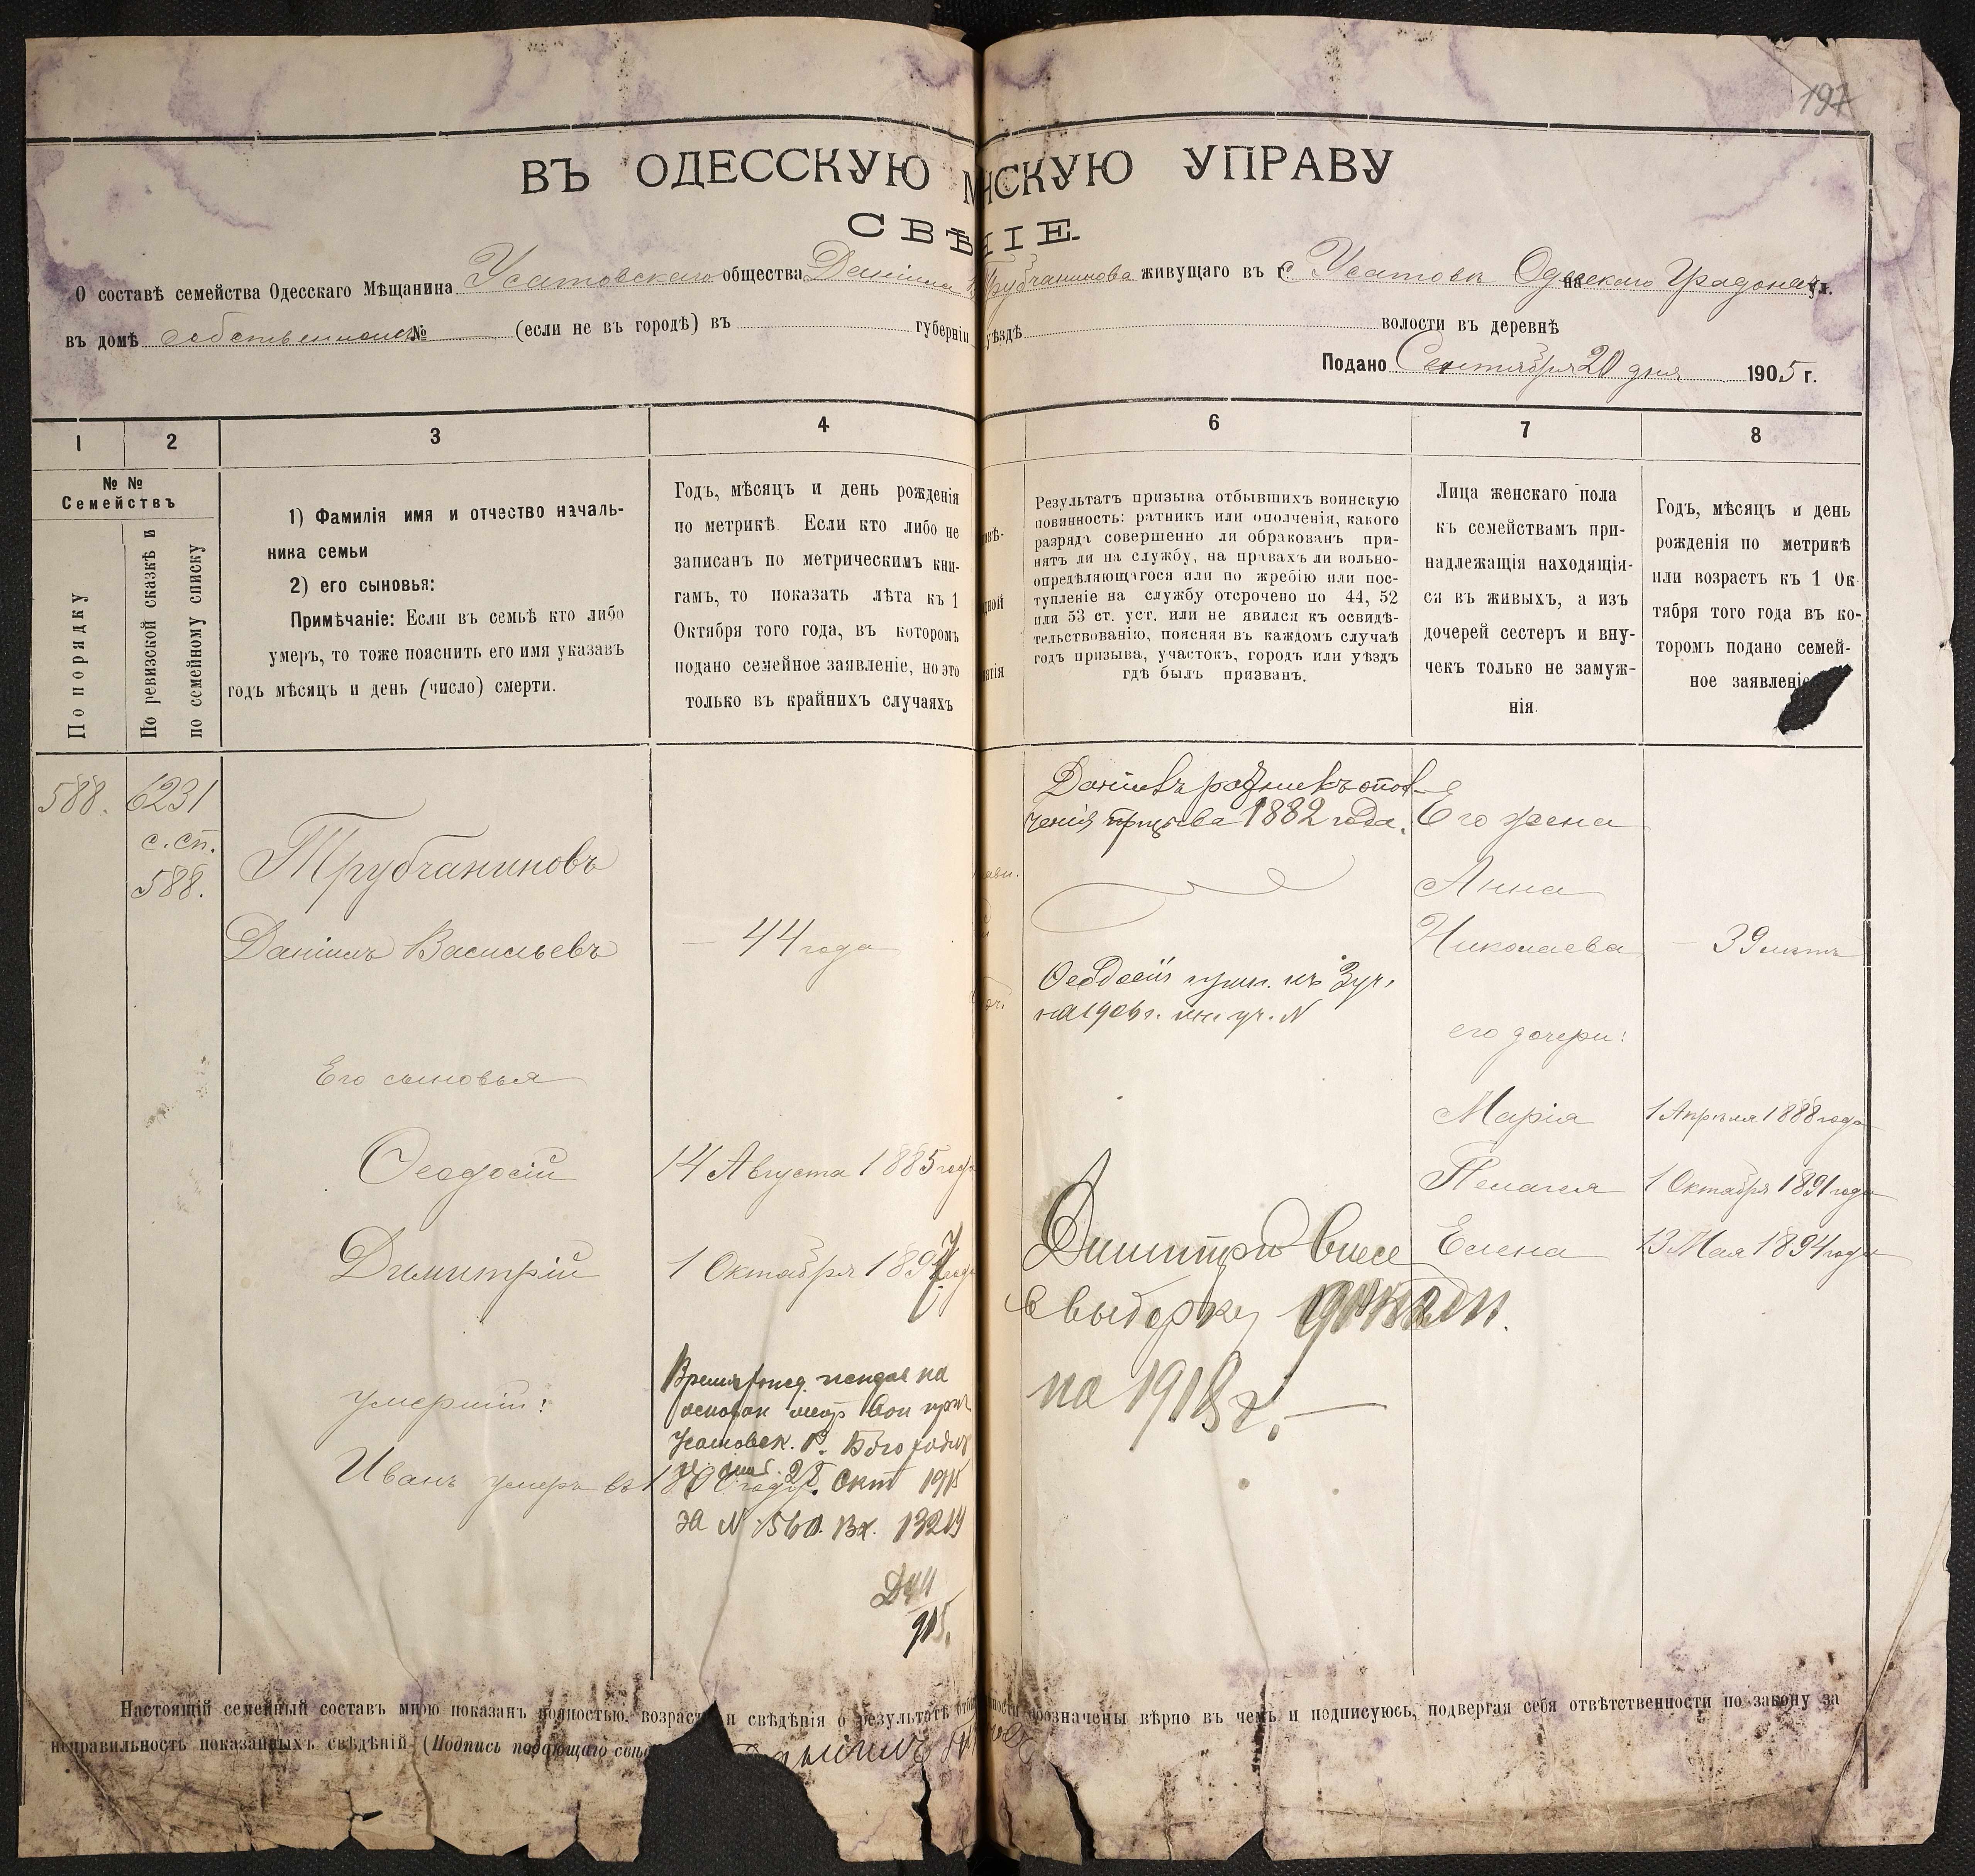 197
ВЪ ОДЕССКУЮ НСКУЮ УПРАВУ
СВѢ НІЕ.
О составѣ семейства Одесскаго Мѣщанина Усатовскаго общества Даніила Трубчанинова живущаго въ с Усатовы Одесскаго Градонач ул.
въ домѣ собственномъ № (если не въ городѣ) въ губерніи уѣздѣ волости въ деревнѣ
Подано Сентября 20 дня 1905 г.
1 2 3 4 6 7 8
№ №
Семействъ
По порядку
По ревизской сказкѣ и
по семейному списку
1) Фамилія имя и отчество началь-
ника семьи
2) его сыновья:
Примѣчаніе: Если въ семьѣ кто либо
умеръ, то тоже пояснить его имя указавъ
годъ мѣсяцъ и день (число) смерти.
Годъ, мѣсяцъ и день рожденія
по метрикѣ Если кто либо не
записанъ по метрическимъ кни-
гамъ, то показать лѣта къ 1
Октября того года, въ которомъ
подано семейное заявленіе, но это
только въ крайнихъ случаяхъ
Результатъ призыва отбывшихъ воинскую
повинность: ратникъ или ополченія, какого
разряда совершенно ли обракованъ при-
нятъ ли на службу, на правахъ ли вольно-
опредѣляющагося или по жребію или пос-
тупленіе на службу отсрочено по 44, 52
или 53 ст. уст. или не явился къ освидѣ-
тельствованію, поясняя въ каждомъ случаѣ
годъ призыва, участокъ, городъ или уѣздъ
гдѣ былъ призванъ.
Лица женскаго пола
къ семействамъ при-
надлежащія находящі-
ся въ живыхъ, а изъ
дочерей сестеръ и вну-
чекъ только не замуж-
нія.
Годъ, мѣсяцъ и день
рожденія по метрикѣ
или возрастъ къ 1 Ок
тября того года въ ко-
торомъ подано семей-
ное заявленіе
588.
6231
с. сп.
588.
Трубчаниновъ
Даніилъ Васильевъ
— 44 года
Его сыновья
Ѳеодосій
14 Августа 1885 года
Димитрій
1 Октября 1897 года
умерший:
Иванъ умеръ въ 1890 году.
на
Усатовск. Р. Богород
28 Окт 1915
за № 560. Вх. 13219
915.
Даніилъ ратникъ опол-
ченія призыва 1882 года.
Ѳеодосій
на 1906 г.
Димитрій внесе
в выборку
на 1918 г. —
Его жена
Анна
Николаева
— 39 лѣтъ
его дочери:
Марія
1 Апрѣля 1888 года
Пелагея
1 Октября 1891 года
Елена
13 Мая 1894 года
Настоящій семейный составъ мною показанъ полностью, возрастъ и свѣдѣнія о результатѣ обозначены вѣрно въ чемъ и подписуюсь, подвергая себя отвѣтственности по закону за
неправильность показанныхъ свѣдѣній (Подпись подающаго